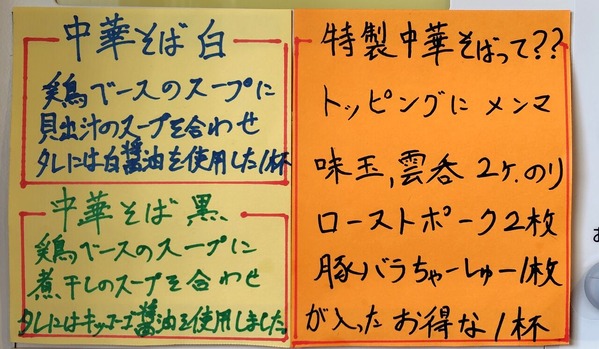 中華そば 白
鶏ベースのスープに
貝出汁のスープを合わせ
タレには白醤油を使用した1杯
中華そば 黒
鶏ベースのスープに
煮干しのスープを合わせ
タレにはキッコーゴ醤油を使用しました。
特製中華そばって??
トッピングに メンマ
味玉,雲呑 2ヶ.のり
ローストポーク2枚
豚バラちゃーしゅー1枚
が入った お得な 1杯